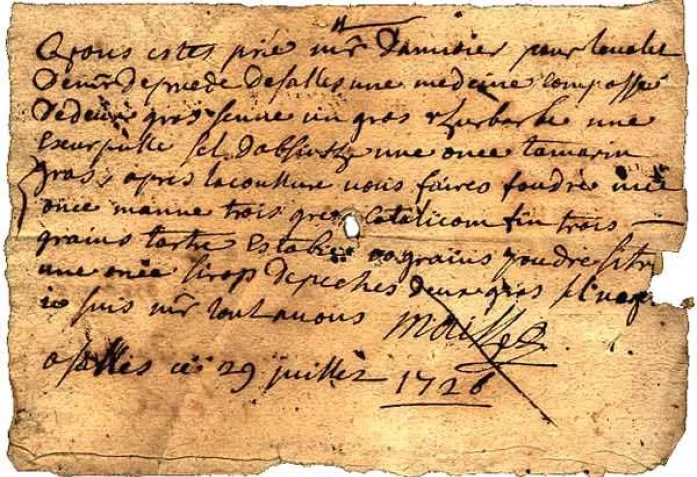 Vous estes prié mr Damidier pour le valet
De mr De prede De salles une medecine composse
De deux gros senne un gros rhurbarbe une
sel D'absinthe une once tamarin
gras, apres la coulture vous faires foudre une
once manne trois gros Catalicom fin trois
grains tartre Estabié 20 grains poudre
une once sirop De peches Deux gros
ie suis mr tout a vous
a salles ce 29 juillet 1726